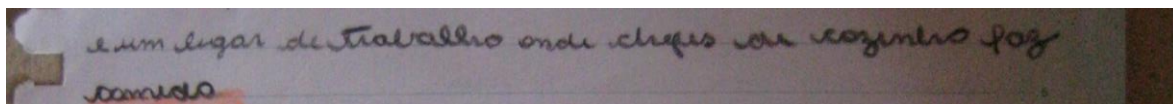 e um lugar de trabalho onde chefes ou cozinho faz
comida